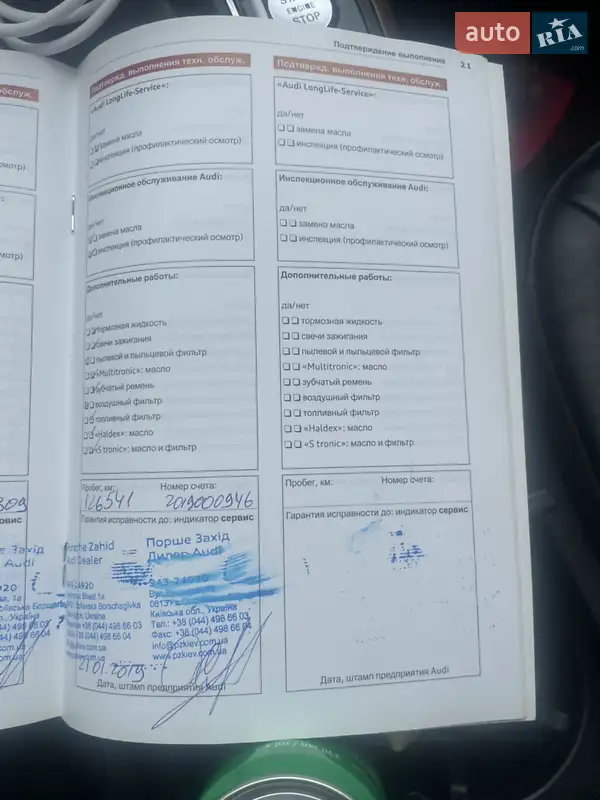 START
ENGINE
STOP
auto
RIA
.com
Подтверждение выполнения 21
обслуж.
смотр)
смотр)
809
сервис
е Захід
Audi
920
44) 498 66 03
44) 498 66 04
com.ua
com.ua
Подтвержд. выполнения техн. обслуж.
«Audi LongLife-Service»:
да/нет
замена масла
инспекция (профилактический осмотр)
Инспекционное обслуживание Audi:
да/нет
замена масла
инспекция (профилактический осмотр)
Дополнительные работы:
да/нет
тормозная жидкость
свечи зажигания
пылевой и пыльцевой фильтр
«Multitronic»: масло
зубчатый ремень
воздушный фильтр
топливный фильтр
«Haldex»: масло
«S tronic»: масло и фильтр
Пробег, км: Номер счета:
126541 2019000946
Гарантия исправности до: индикатор сервис
Porsche Zahid
Audi Dealer
Порше Захід
Дилер Audi
243-24920
Київська обл., Україна
Тел.: +38 (044) 498 66 03
Факс: +38 (044) 498 66 04
info@pzkiev.com.ua
www.pzkiev.com.ua
21.01.2019
Дата, штамп предприятия Audi
Подтвержд. выполнения техн. обслуж.
«Audi LongLife-Service»:
да/нет
замена масла
инспекция (профилактический осмотр)
Инспекционное обслуживание Audi:
да/нет
замена масла
инспекция (профилактический осмотр)
Дополнительные работы:
да/нет
тормозная жидкость
свечи зажигания
пылевой и пыльцевой фильтр
«Multitronic»: масло
зубчатый ремень
воздушный фильтр
топливный фильтр
«Haldex»: масло
«S tronic»: масло и фильтр
Пробег, км: Номер счета:
Гарантия исправности до: индикатор сервис
Дата, штамп предприятия Audi